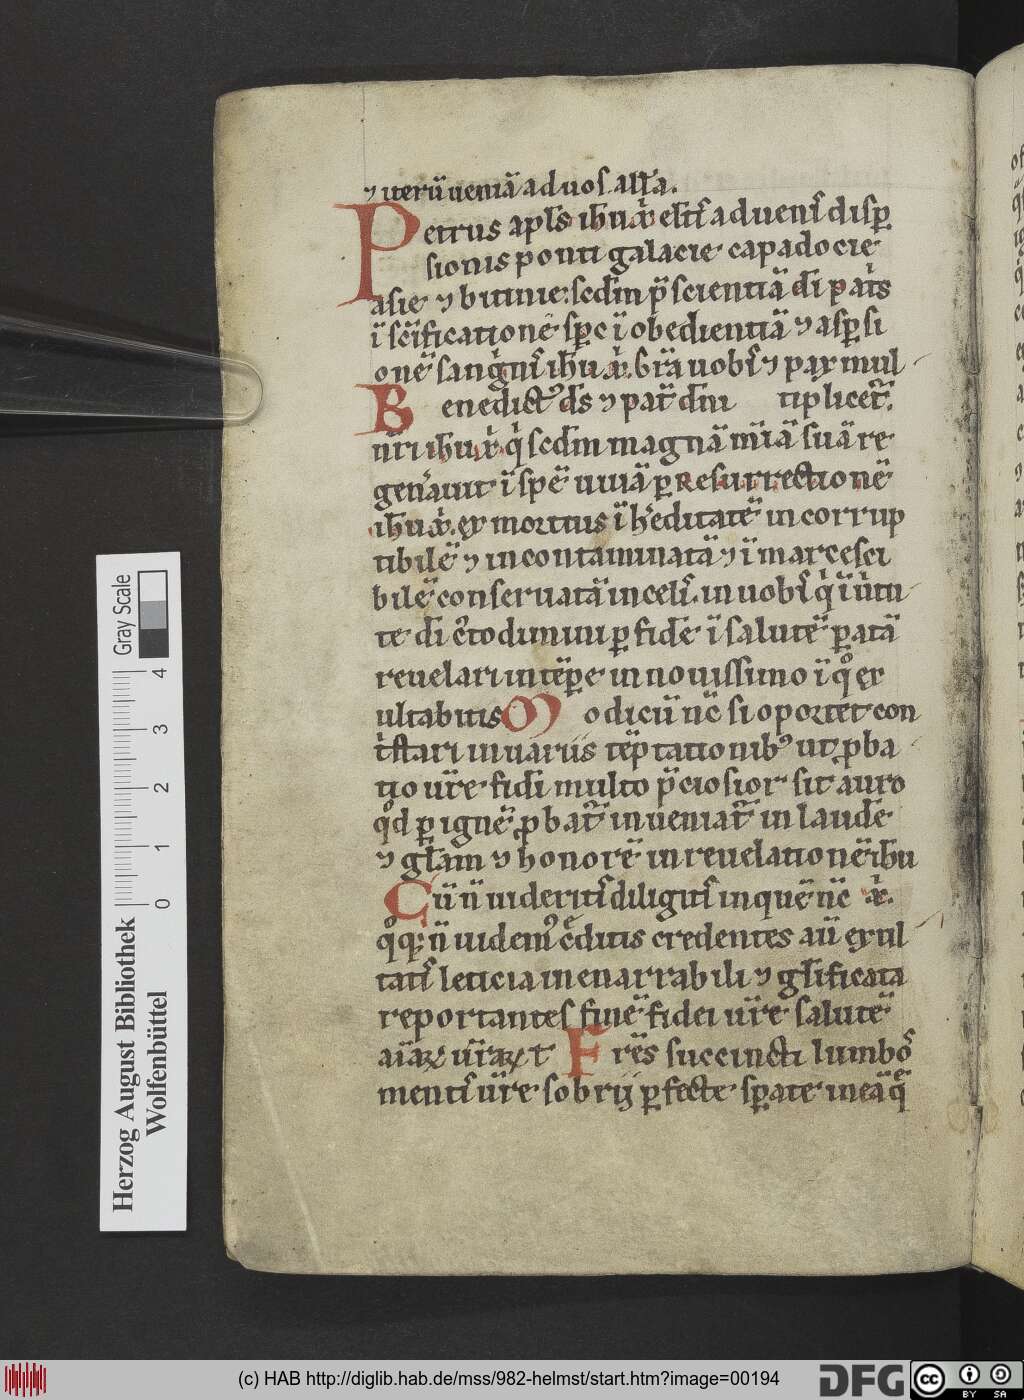 ⁊ iterū ueniā ad uos. all'a.
Petrus apl's ih'u xp̄i elc̄is aduenis disp̱
sionis ponti galacie capadocie
asie ⁊ bitinie. scd'm p̄scientiā di patis
ī sc̄ificationē sp̄c ī obedientiā ⁊ asp̱si
onē sangnīs ih'u xp̄i. gr̄a uobis ⁊ pax mul
Benedictꝰ d's ⁊ pat̄ dn̄i tiplicet̄.
nr̄i ih'u xp̄i q̄ scd'm magnā mīā suā re
gen'auit ī spē uiuā p̱ Resurrectionē
ih'u xp̄i. ex mortuis ī h'editatē incorrup
tibilē ⁊ incontaminatā ⁊ īmarcesci
bilē conseruatā in celis. in uobis q̄ ī uirtu
te di c̄todimini p̱ fidē ī salutē p̱atā
reuelari in tēp̱e in nouissimo ī qͦ ex
ultabitis Modicū nc̄ si oportet con
tstari in uariis tēptationibꝰ ut ꝓba
tio ur̄e fidi multo p̄ciosior sit auro
qͦd p̱ ignē ꝓbat̄ inueniat̄ in laudē
⁊ gl'am ⁊ honorē in reuelationē ih'u
Cū n̄ uideritis diligitis in quē nc̄ xp̄i.
qͦq̄ n̄ uidentes c̄ditis credentes aū exul
tatis leticia inenarrabili ⁊ gl'ificata
reportantes finē fidei ur̄e salutē
aīaꝝ ur̄aꝝ τ Fr̄es succincti lumbos
mentis ur̄e sobrij p̱fecte sp̱ate in eā q̄
Herzog August Bibliothek
Wolfenbüttel
0 1 2 3 4
Gray Scale
(c) HAB http://diglib.hab.de/mss/982-helmst/start.htm?image=00194
DFG
cc BY SA